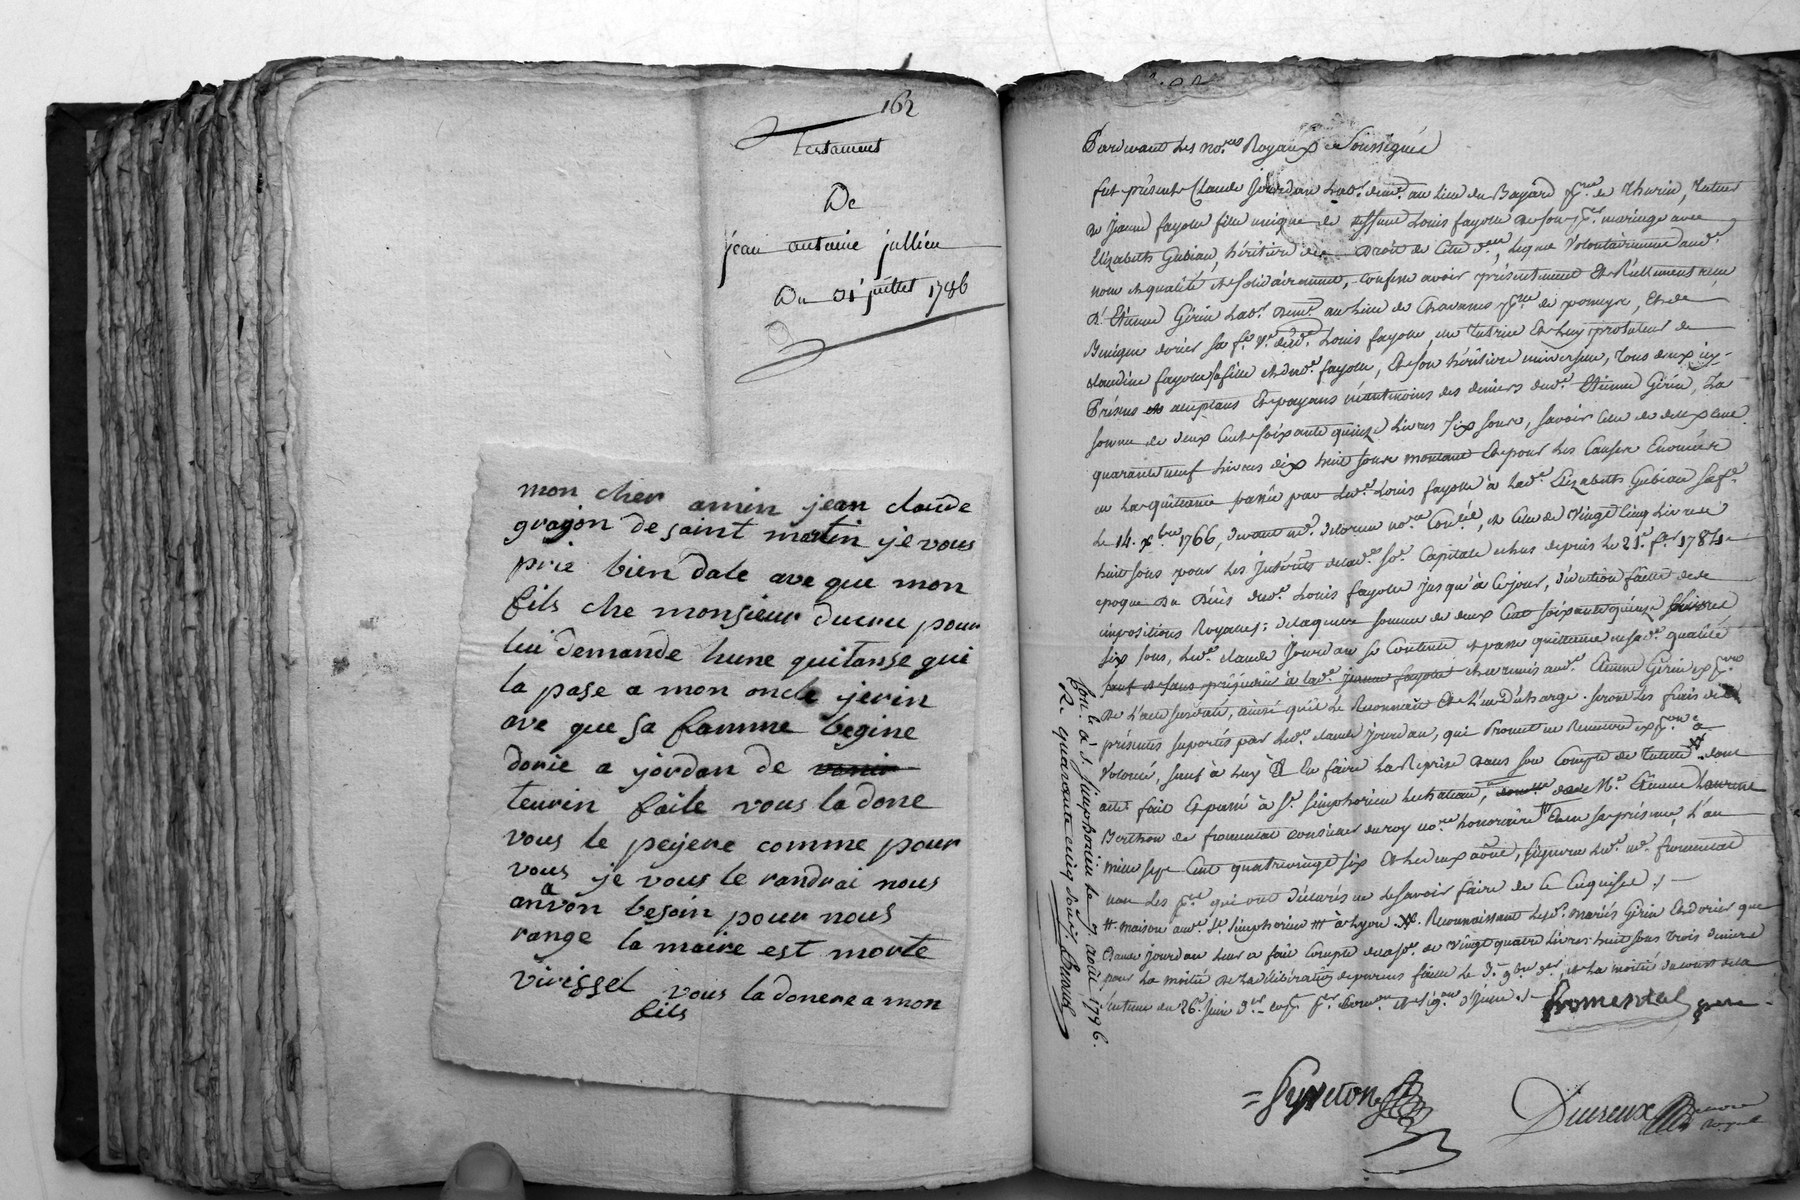 162
Testament
De
jean antoine jullien
Du 31 juillet 1786
mon cher amin jean claude
grajon de saint martin je vous
prie bien dale ave que mon
fils che monsieur ducru pour
lui demande hune quitanse qui
la pase a mon oncle jerin
ave que sa famme begine
dorie a jordan de
teurin faite vous la done
vous le peyere comme pour
vous je vous le randrai nous
anvon besoin pour nous
range la maire est morte
virissel vous la donere a mon
fils
Pardevant les no.res Royaux Soussignés
fut présent Claude Jourdan lab.r dem.t au lieu du Bayard p.sse de Thurin, Tuteur
de Jeanne fayolle fille unique de deffunt Louis fayolle de son mariage avec
Elizabeth Gubian, héritière de droit de volontairement aud.t
nom et qualité et solidairement, confesse avoir présentement et Réellement reçu
d'Etienne Gérin Lab.r dem.t au Lieu de Chavanes p.sse de pomeys, et de
Benigne dorier sa f.e v.e dud.t Louis fayolle, tutrice et luy protuteur de
claudine fayolle sa fille et dud.t fayolle, et son héritière universelle, tous deux icy
Présens acceptans et payans néantmoins des deniers dud.t Etienne Gérin, La
somme de deux cent soixante quinze livres six sous, savoir celle de deux cent
quarante neuf livres dix huit sous montant et pour les causes Enoncées
en la quittance passée par led.t Louis fayolle à lad.e Elizabeth Gubian sa f.e
Le 14. x.bre 1766, devant m.e no.re et celle de vingt cinq livres
huit sous pour les Intérêts de lad.e so.e Capitale echus depuis le 21.e 1784
epoque du Décès dud.t Louis fayolle jusqu'à ce jour, déduction faite de
impositions Royalles; de laquelle somme de deux cent soixante quinze livres
six sous, led.t claude Jourdan se contente et passe quittance en sad.e qualité
Etienne Gérin
De l'acte susdatté, ainsi qu'il le Reconnait et l'en décharge. seront les frais de
présentes suportés par led.t claude jourdan, qui Promet
volonté, sauf à luy à En faire la Reprise dans son Compte de tutelle dont
acte fait et passé à S.t Simphorien le chateau, M.e Etienne
Berthon de fromental conseiller du roy no.re honoraire présence, L'an
mille sept cent quatre vingt six et le deux août, signera led.t m.e fromental
non les p.ties qui ont déclaré ne le savoir faire de ce Requises ./.
maison aud.t S.t Simphorien à Lyon Reconnaissant lesd.ts mariés Gérin et dorier que
Claude jourdan leur a fait Compte de la so.e de vingt quatre livres huit sous trois deniers
pour la moitié de la délibération faitte le 3.e 9.bre et la moitié
sentence du 26.e juin
fromental pere
Peyreton
Ducreux
notaire royal
Con.lé à S. Simphorien le 7 août 1786.
Re. quarante cinq sous